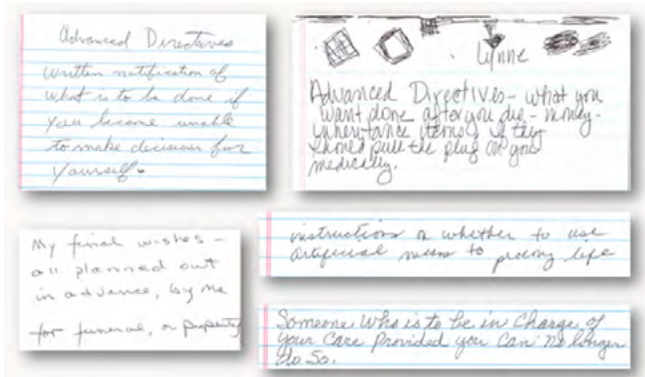 Advanced Directives
written notification of
what is to be done if
you become unable
to make decisions for
yourself.
Lynne
Advanced Directives - what you
want done after you die - money -
inheritance items, if they
should pull the plug on you
medically.
My final wishes -
all planned out
in advance, by me
for funeral, or property
instructions on whether to use
artificial means to prolong life
Someone who is to be in charge of
your care provided you can no longer
do so.